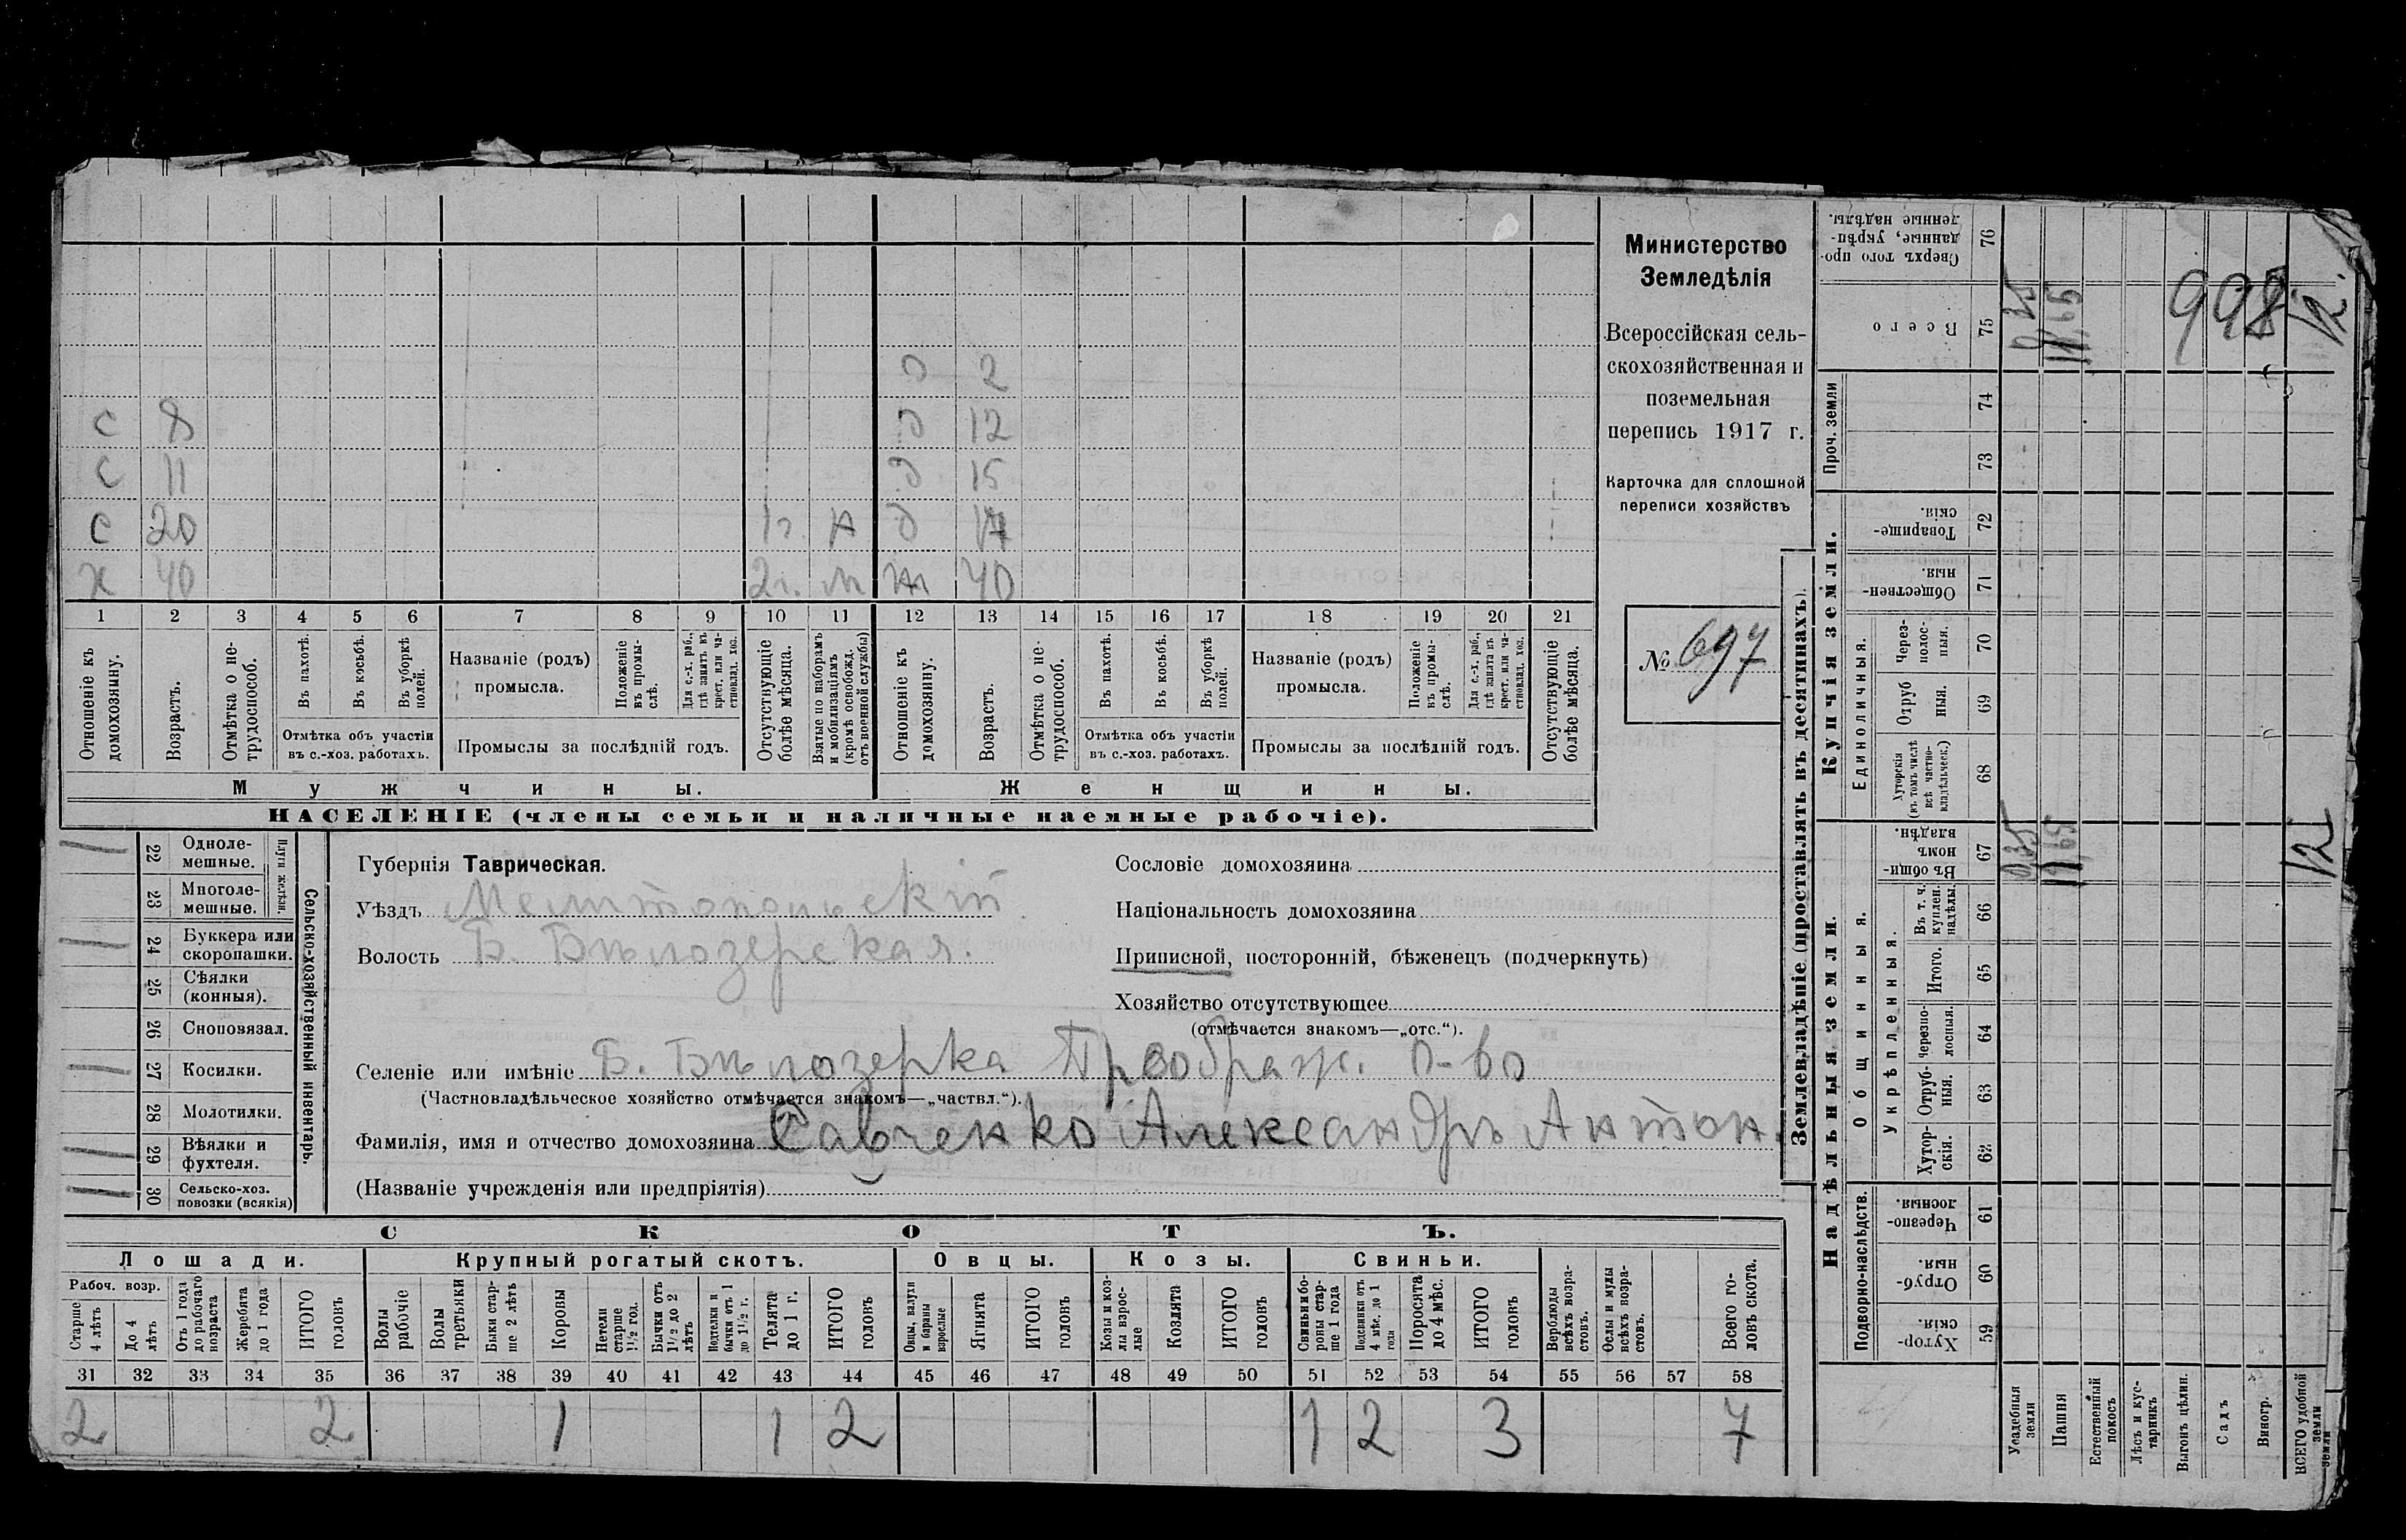 Министерство
Земледѣлія
Всероссійская сель-
скохозяйственная и
поземельная
перепись 1917 г.
Карточка для сплошной
переписи хозяйствъ
№ 697
Д 2
С 8 Д 12
С 11 Д 15
С 20 1г. Д 17
Х 40 2г. М Ж 40
1 2 3 4 5 6 7 8 9 10 11 12 13 14 15 16 17 18 19 20 21
Отношеніе къ домохозяину.
Возрастъ.
Отмѣтка о не-трудоспособ.
Въ пахотѣ.
Въ косьбѣ.
Въ уборкѣ полей.
Отмѣтка объ участіи
въ с.-хоз. работахъ.
Названіе (родъ)
промысла.
Положеніе въ промы-слѣ.
Для с.-х. раб., гдѣ занятъ въ крест. или ча-стновлад. хоз.
Промыслы за послѣдній годъ.
Отсутствующіе болѣе мѣсяца.
Взятые по наборамъ и мобилизаціямъ (кромѣ освобожд. отъ военной службы)
Отношеніе къ домохозяину.
Возрастъ.
Отмѣтка о не-трудоспособ.
Въ пахотѣ.
Въ косьбѣ.
Въ уборкѣ полей.
Отмѣтка объ участіи
въ с.-хоз. работахъ.
Названіе (родъ)
промысла.
Положеніе въ промы-слѣ.
Для с.-х. раб., гдѣ занята въ крест. или ча-стновлад. хоз.
Промыслы за послѣдній годъ.
Отсутствующіе болѣе мѣсяца.
Мужчины. Женщины.
НАСЕЛЕНІЕ (члены семьи и наличные наемные рабочіе).
Сельско-хозяйственный инвентарь.
Плуги желѣзн.
1 22 Одноле-мешные.
23 Многоле-мешные.
1 24 Буккера или скоропашки.
25 Сѣялки (конныя).
26 Сноповязал.
1 27 Косилки.
28 Молотилки.
1 29 Вѣялки и фухтеля.
1 30 Сельско-хоз. повозки (всякія)
Губернія Таврическая.
Уѣздъ Мелитопольскій
Волость Б. Бѣлозерская.
Сословіе домохозяина
Національность домохозяина
Приписной, посторонній, бѣженецъ (подчеркнуть)
Хозяйство отсутствующее
(отмѣчается знакомъ—„отс.“).
Селеніе или имѣніе Б. Бѣлозерка Преображ. О-во
(Частновладѣльческое хозяйство отмѣчается знакомъ—„частвл.“).
Фамилія, имя и отчество домохозяина Савченко Александръ Антон.
(Названіе учрежденія или предпріятія)
СКОТЪ.
Лошади. Крупный рогатый скотъ. Овцы. Козы. Свиньи.
Рабоч. возр.
Старше 4 лѣтъ
До 4 лѣтъ
Отъ 1 года до рабочаго возраста
Жеребята до 1 года
ИТОГО головъ
Волы рабочіе
Волы третьяки
Быки стар-ше 2 лѣтъ
Коровы
Нетели старше 1½ год.
Бычки отъ 1½ до 2 лѣтъ
Подтелки и бычки отъ 1 до 1½ г.
Телята до 1 г.
ИТОГО головъ
Овцы, валухи и бараны взрослые
Ягнята
ИТОГО головъ
Козы и коз-лы взрос-лые
Козлята
ИТОГО головъ
Свиньи и бо-ровы стар-ше 1 года
Подсвинки отъ 4 мѣс. до 1 года
Поросята до 4 мѣс.
ИТОГО головъ
Верблюды всѣхъ возра-стовъ.
Ослы и мулы всѣхъ возра-стовъ.
Всего го-ловъ скота.
31 32 33 34 35 36 37 38 39 40 41 42 43 44 45 46 47 48 49 50 51 52 53 54 55 56 57 58
2 2 1 1 2 1 2 3 7
Землевладѣніе (проставлять въ десятинахъ).
Надѣльныя земли.
Купчія земли.
Проч. земли
Подворно-наслѣдств.
Общинныя.
Укрѣпленныя.
Единоличныя.
Сверхъ того про-данные, укрѣп-ленные надѣлы. 76
Всего 75 0,35 11,65 12.
998
74
73
Товарище-скія. 72
Обществен-ныя. 71
Через-полос-ныя. 70
Отруб ныя. 69
Хуторскія (въ томъ числѣ всѣ частно-владѣльческ.) 68
Въ общи-номъ владѣн. 67 0,35 11,65 12
Въ т. ч. куплен. надѣлы. 66
Итого. 65
Черезпо-лосныя. 64
Отруб-ныя. 63
Хутор-скія. 62
Черезпо-лосныя. 61
Отруб-ныя. 60
Хутор-скія. 59
Усадебныя земли
Пашня
Естественный покосъ
Лѣсъ и кус-тарникъ
Выгонъ цѣлин.
Садъ
Виногр.
ВСЕГО удобной земли